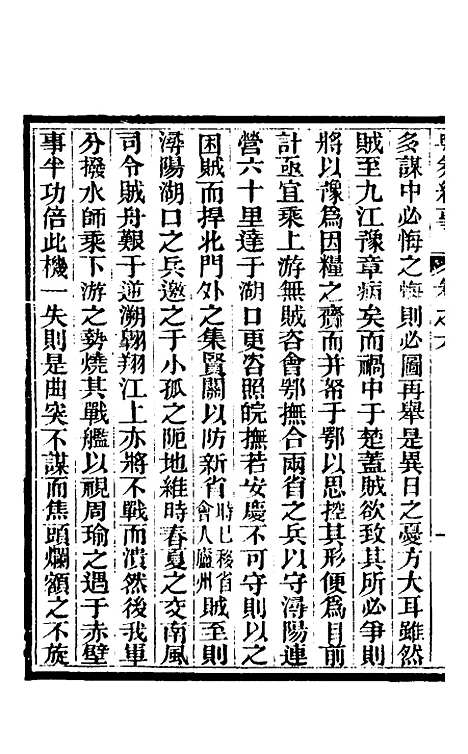 多謀中必悔之悔則必圖再舉是異日之憂方大耳雖然
賊至九江豫章病矣而禍中于楚蓋賊欲致其所必爭則
將以豫為因糧之齎而并帑于鄂以思控其形便為目前
計亟宜乘上游無賊咨會鄂撫合兩省之兵以守潯陽連
營六十里達于湖口更咨照皖撫若安慶不可守則以之
困賊而捍北門外之集賢關以防新省時已移省會人廬州賊至則
潯陽湖口之兵邀之于小孤之阨地維時春夏之交南風
司令賊舟艱于逆溯翱翔江上亦將不戰而潰然後我軍
分撥水師乘下游之勢燒其戰艦以視周瑜之遇于赤壁
事半功倍此機一失則是曲突不謀而焦頭爛額之不旋